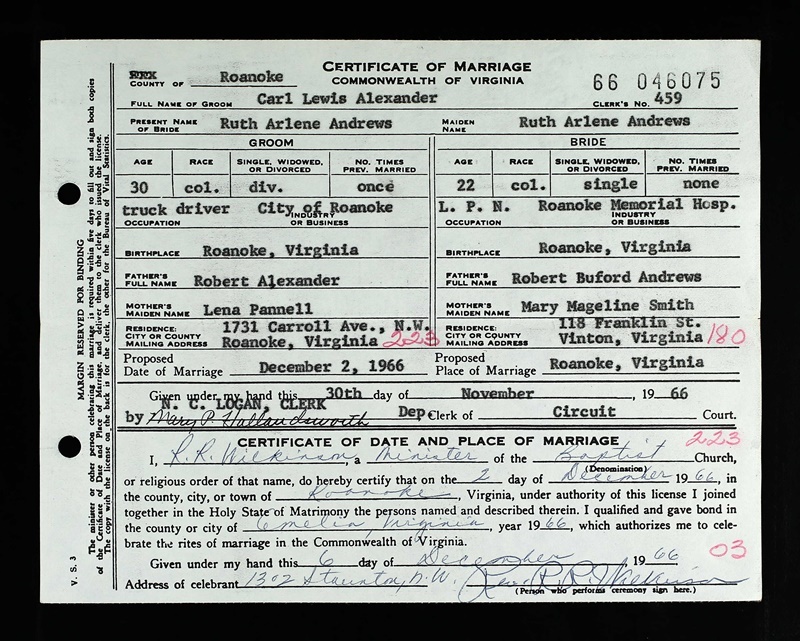 CERTIFICATE OF MARRIAGE
COMMONWEALTH OF VIRGINIA
COUNTY OF Roanoke
66 046075
FULL NAME OF GROOM Carl Lewis Alexander CLERK'S No. 459
PRESENT NAME OF BRIDE Ruth Arlene Andrews MAIDEN NAME Ruth Arlene Andrews
GROOM BRIDE
AGE RACE SINGLE, WIDOWED, OR DIVORCED NO. TIMES PREV. MARRIED AGE RACE SINGLE, WIDOWED, OR DIVORCED NO. TIMES PREV. MARRIED
30 col. div. once 22 col. single none
truck driver City of Roanoke L. P. N. Roanoke Memorial Hosp.
OCCUPATION INDUSTRY OR BUSINESS OCCUPATION INDUSTRY OR BUSINESS
BIRTHPLACE Roanoke, Virginia BIRTHPLACE Roanoke, Virginia
FATHER'S FULL NAME Robert Alexander FATHER'S FULL NAME Robert Buford Andrews
MOTHER'S MAIDEN NAME Lena Pannell MOTHER'S MAIDEN NAME Mary Mageline Smith
RESIDENCE: 1731 Carroll Ave., N.W. RESIDENCE: 118 Franklin St.
CITY OR COUNTY MAILING ADDRESS Roanoke, Virginia 223 CITY OR COUNTY MAILING ADDRESS Vinton, Virginia 180
Proposed Date of Marriage December 2, 1966 Proposed Place of Marriage Roanoke, Virginia
Given under my hand this 30th day of November, 1966
N. C. LOGAN, CLERK
by Mary P. Hallandsworth Dep Clerk of Circuit Court.
CERTIFICATE OF DATE AND PLACE OF MARRIAGE 223
I, R. R. Wilkinson, a Minister of the Baptist Church,
(Denomination)
or religious order of that name, do hereby certify that on the 2 day of December 1966, in
the county, city, or town of Roanoke, Virginia, under authority of this license I joined
together in the Holy State of Matrimony the persons named and described therein. I qualified and gave bond in
the county or city of Emelia, Virginia, year 1966, which authorizes me to cele-
brate the rites of marriage in the Commonwealth of Virginia. 03
Given under my hand this 6 day of December, 1966
Address of celebrant 1302 Staunton, N.W. Rev. R. R. Wilkinson
(Person who performs ceremony sign here.)
V. S. 3
MARGIN RESERVED FOR BINDING
The minister or other person celebrating this marriage is required within five days to fill out and sign both copies
of the Certificate of Date and Place of Marriage, and deliver them to the clerk who issued the license.
The copy with the license on the back is for the clerk, the other for the Bureau of Vital Statistics.